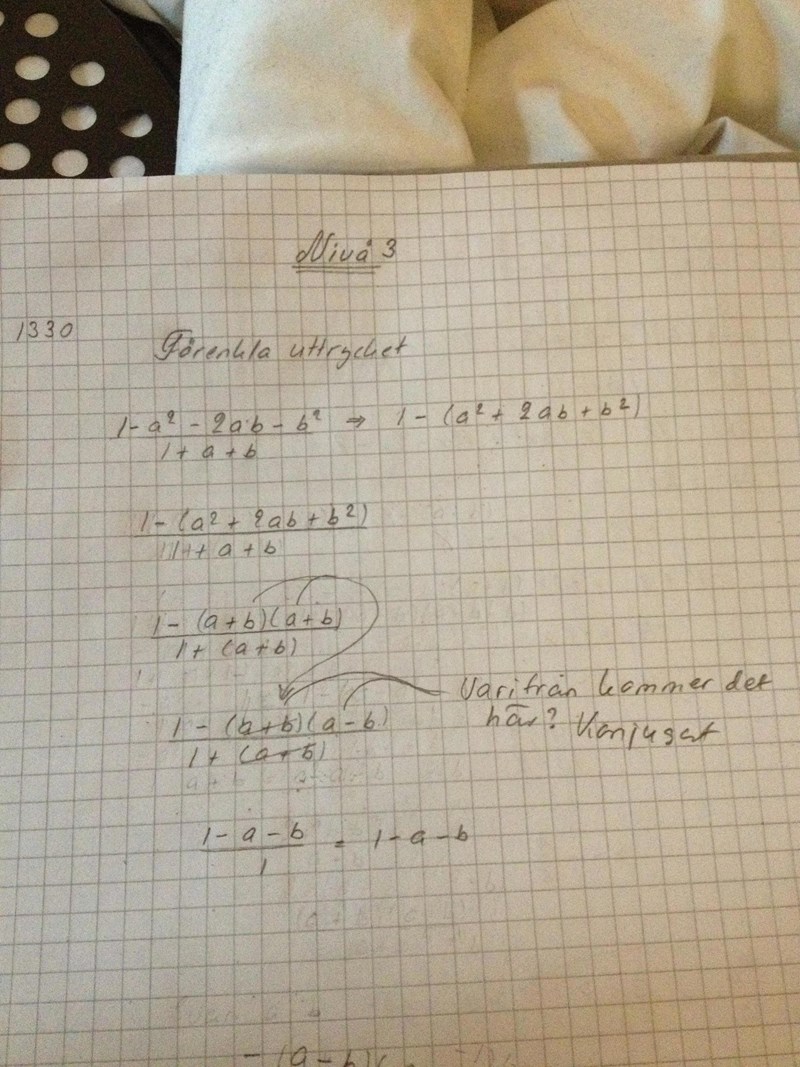 Nivå 3
1330 Förenkla uttrycket
1-a² - 2ab - b² ⇒ 1 - (a² + 2ab + b²)
1 + a + b
1 - (a² + 2ab + b²)
1 + a + b
1 - (a+b)(a+b)
1 + (a+b)
1 - (a+b)(a-b) Varifrån kommer det
här? Konjugat
1 + (a+b)
1 - a - b = 1-a-b
1
- (a-b)(